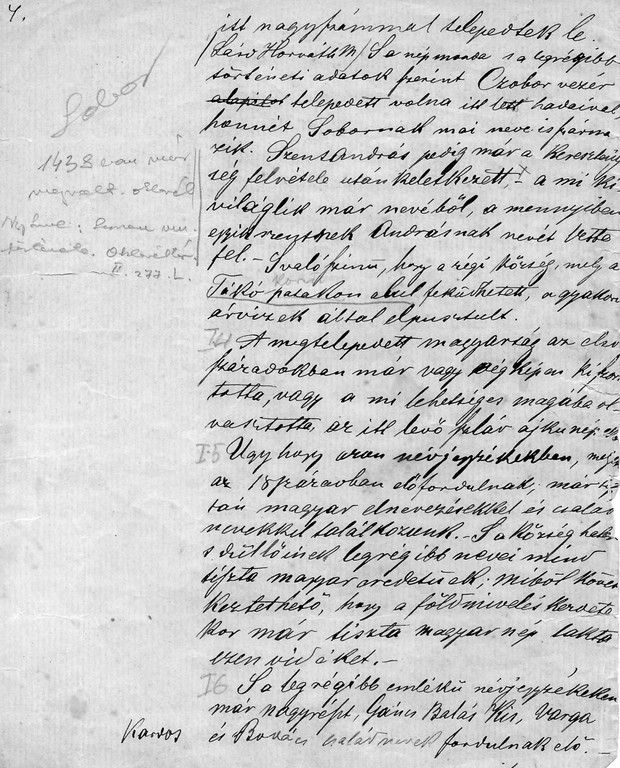 4.
itt nagyszámmal telepedtek le.
(Lásd Horváth M) S a népmonda s a legrégibb
történeti adatok szerint Czobor vezér
alapitot telepedett volna itt lett hadaival,
honnét Sobornak mai neve is szárma
zik. Szentandrás pedig már a keresztény
ség felvétele után keletkezett, a mi ki
világlik már nevéből, a mennyiben
egyik szentnek Andrásnak nevét vette
fel. – S valószinü, hogy a régi község, mely a
Tákó patakon alul feküdhetett, a gyakori
árvizek által elpusztult.
I4 A megtelepedett magyarság az első
századokban már vagy végképen kiszori
totta, vagy a mi lehetséges magába ol
vasztotta, az itt levő szláv ajku nép
I.5 Úgy hogy azon névjegyzékekben, melyek
az 18 században előfordulnak, már tisz
tán magyar elnevezésekkel és család
nevekkel találkozunk. – S a község hatá
s dülőinek legrégibb nevei mind
tiszta magyar eredetüek; miből követ
keztethető, hogy a földmivelés kezdete
kor már tiszta magyar nép lakta
ezen vidéket. –
I6 S a legrégibb emlékü névjegyzékekben
már nagyrészt, Gáncs Balás Kis, Varga
és Kovács családnevek fordulnak elő. –
Sobor
1438 ban már
megvolt. oklevél
II. 277. l.
Kardos